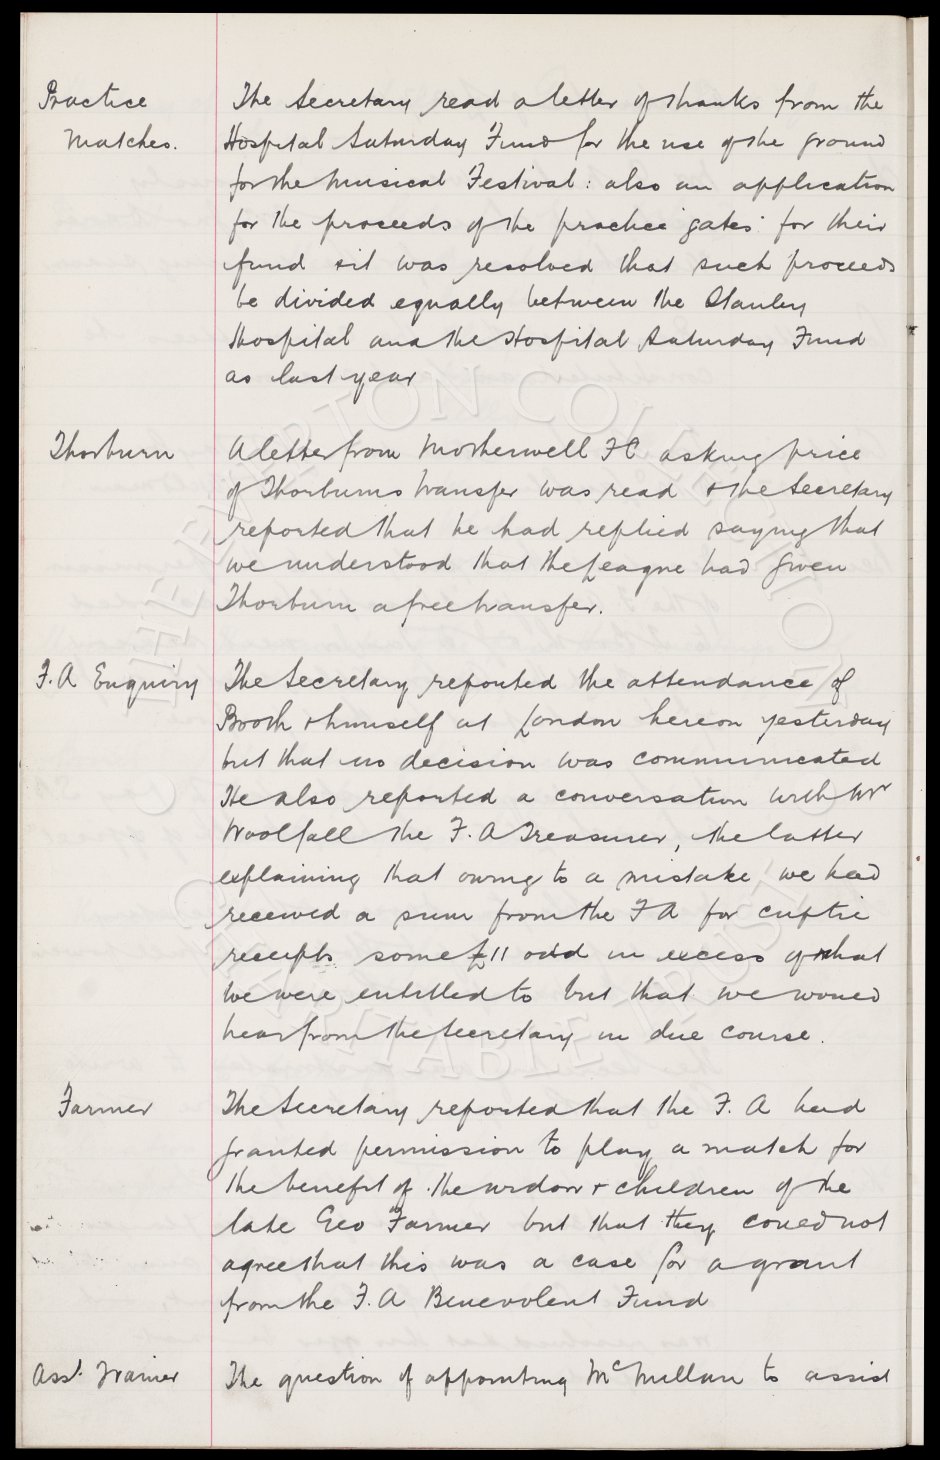 Practice
Matches.
The Secretary read a letter of thanks from the
Hospital Saturday Fund for the use of the ground
for the Musical Festival: also an application
for the proceeds of the practice gates for their
fund & it was resolved that such proceeds
be divided equally between the Stanley
Hospital and the Hospital Saturday Fund
as last year
Thorburn
A letter from Motherwell FC asking price
of Thorburns transfer was read & the Secretary
reported that he had replied saying that
we understood that the League had given
Thorburn a free transfer.
F.A Enquiry
The Secretary reported the attendance of
Booth & himself at London hereon yesterday
but that no decision was communicated
He also reported a conversation with Mr
Woolfall the F.A Treasurer, the latter
explaining that owing to a mistake we had
received a sum from the FA for cuptie
receipts some £11 odd in excess of what
we were entitled to but that we would
hear from the Secretary in due course.
Farmer
The Secretary reported that the F.A had
granted permission to play a match for
the benefit of the widow & children of the
late Geo Farmer but that they could not
agree that this was a case for a grant
from the F.A Benevolent Fund
Asst. Trainer
The question of appointing McMillan to assist
THE EVERTON COLLECTION
CHARITABLE TRUST